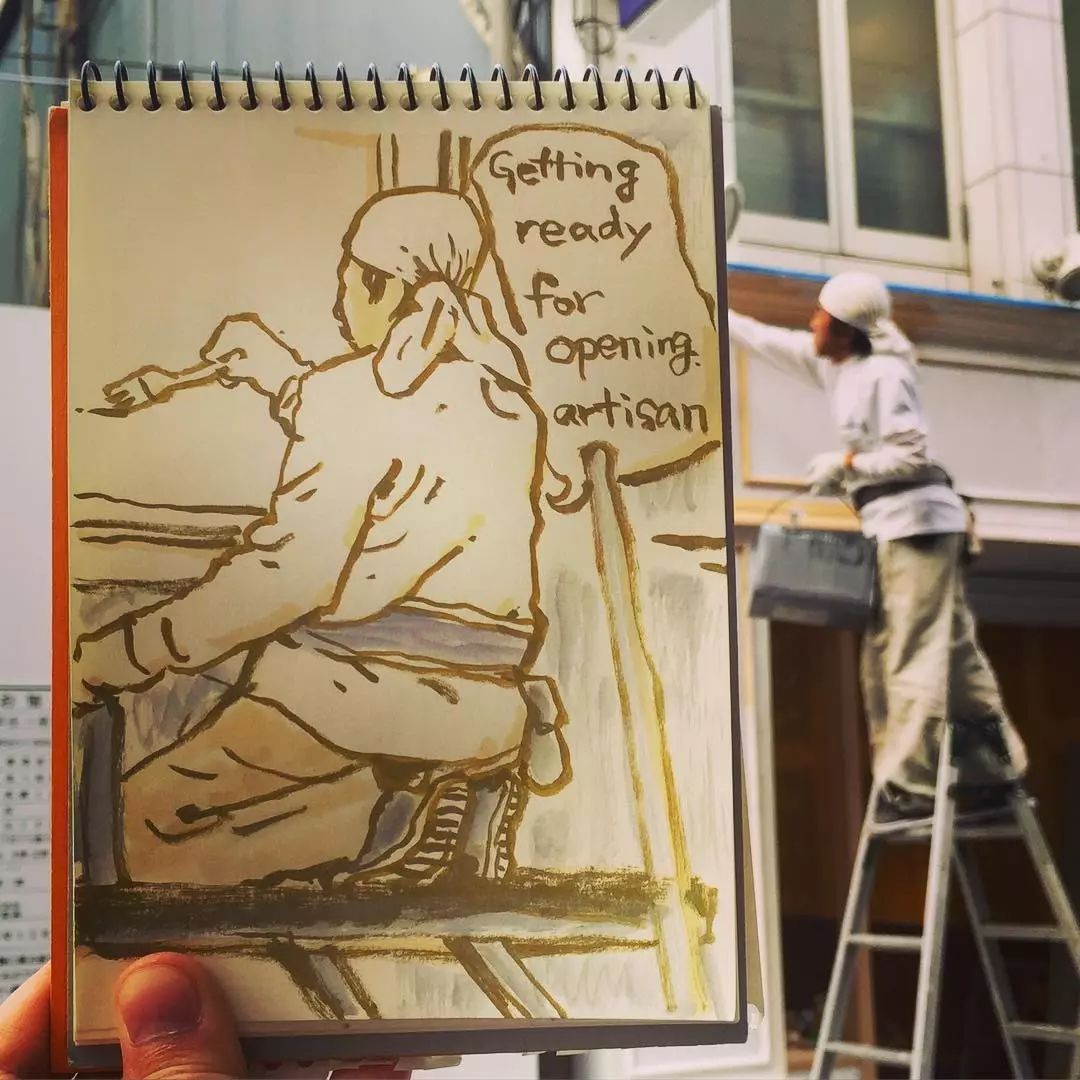 Getting
ready
for
opening.
artisan